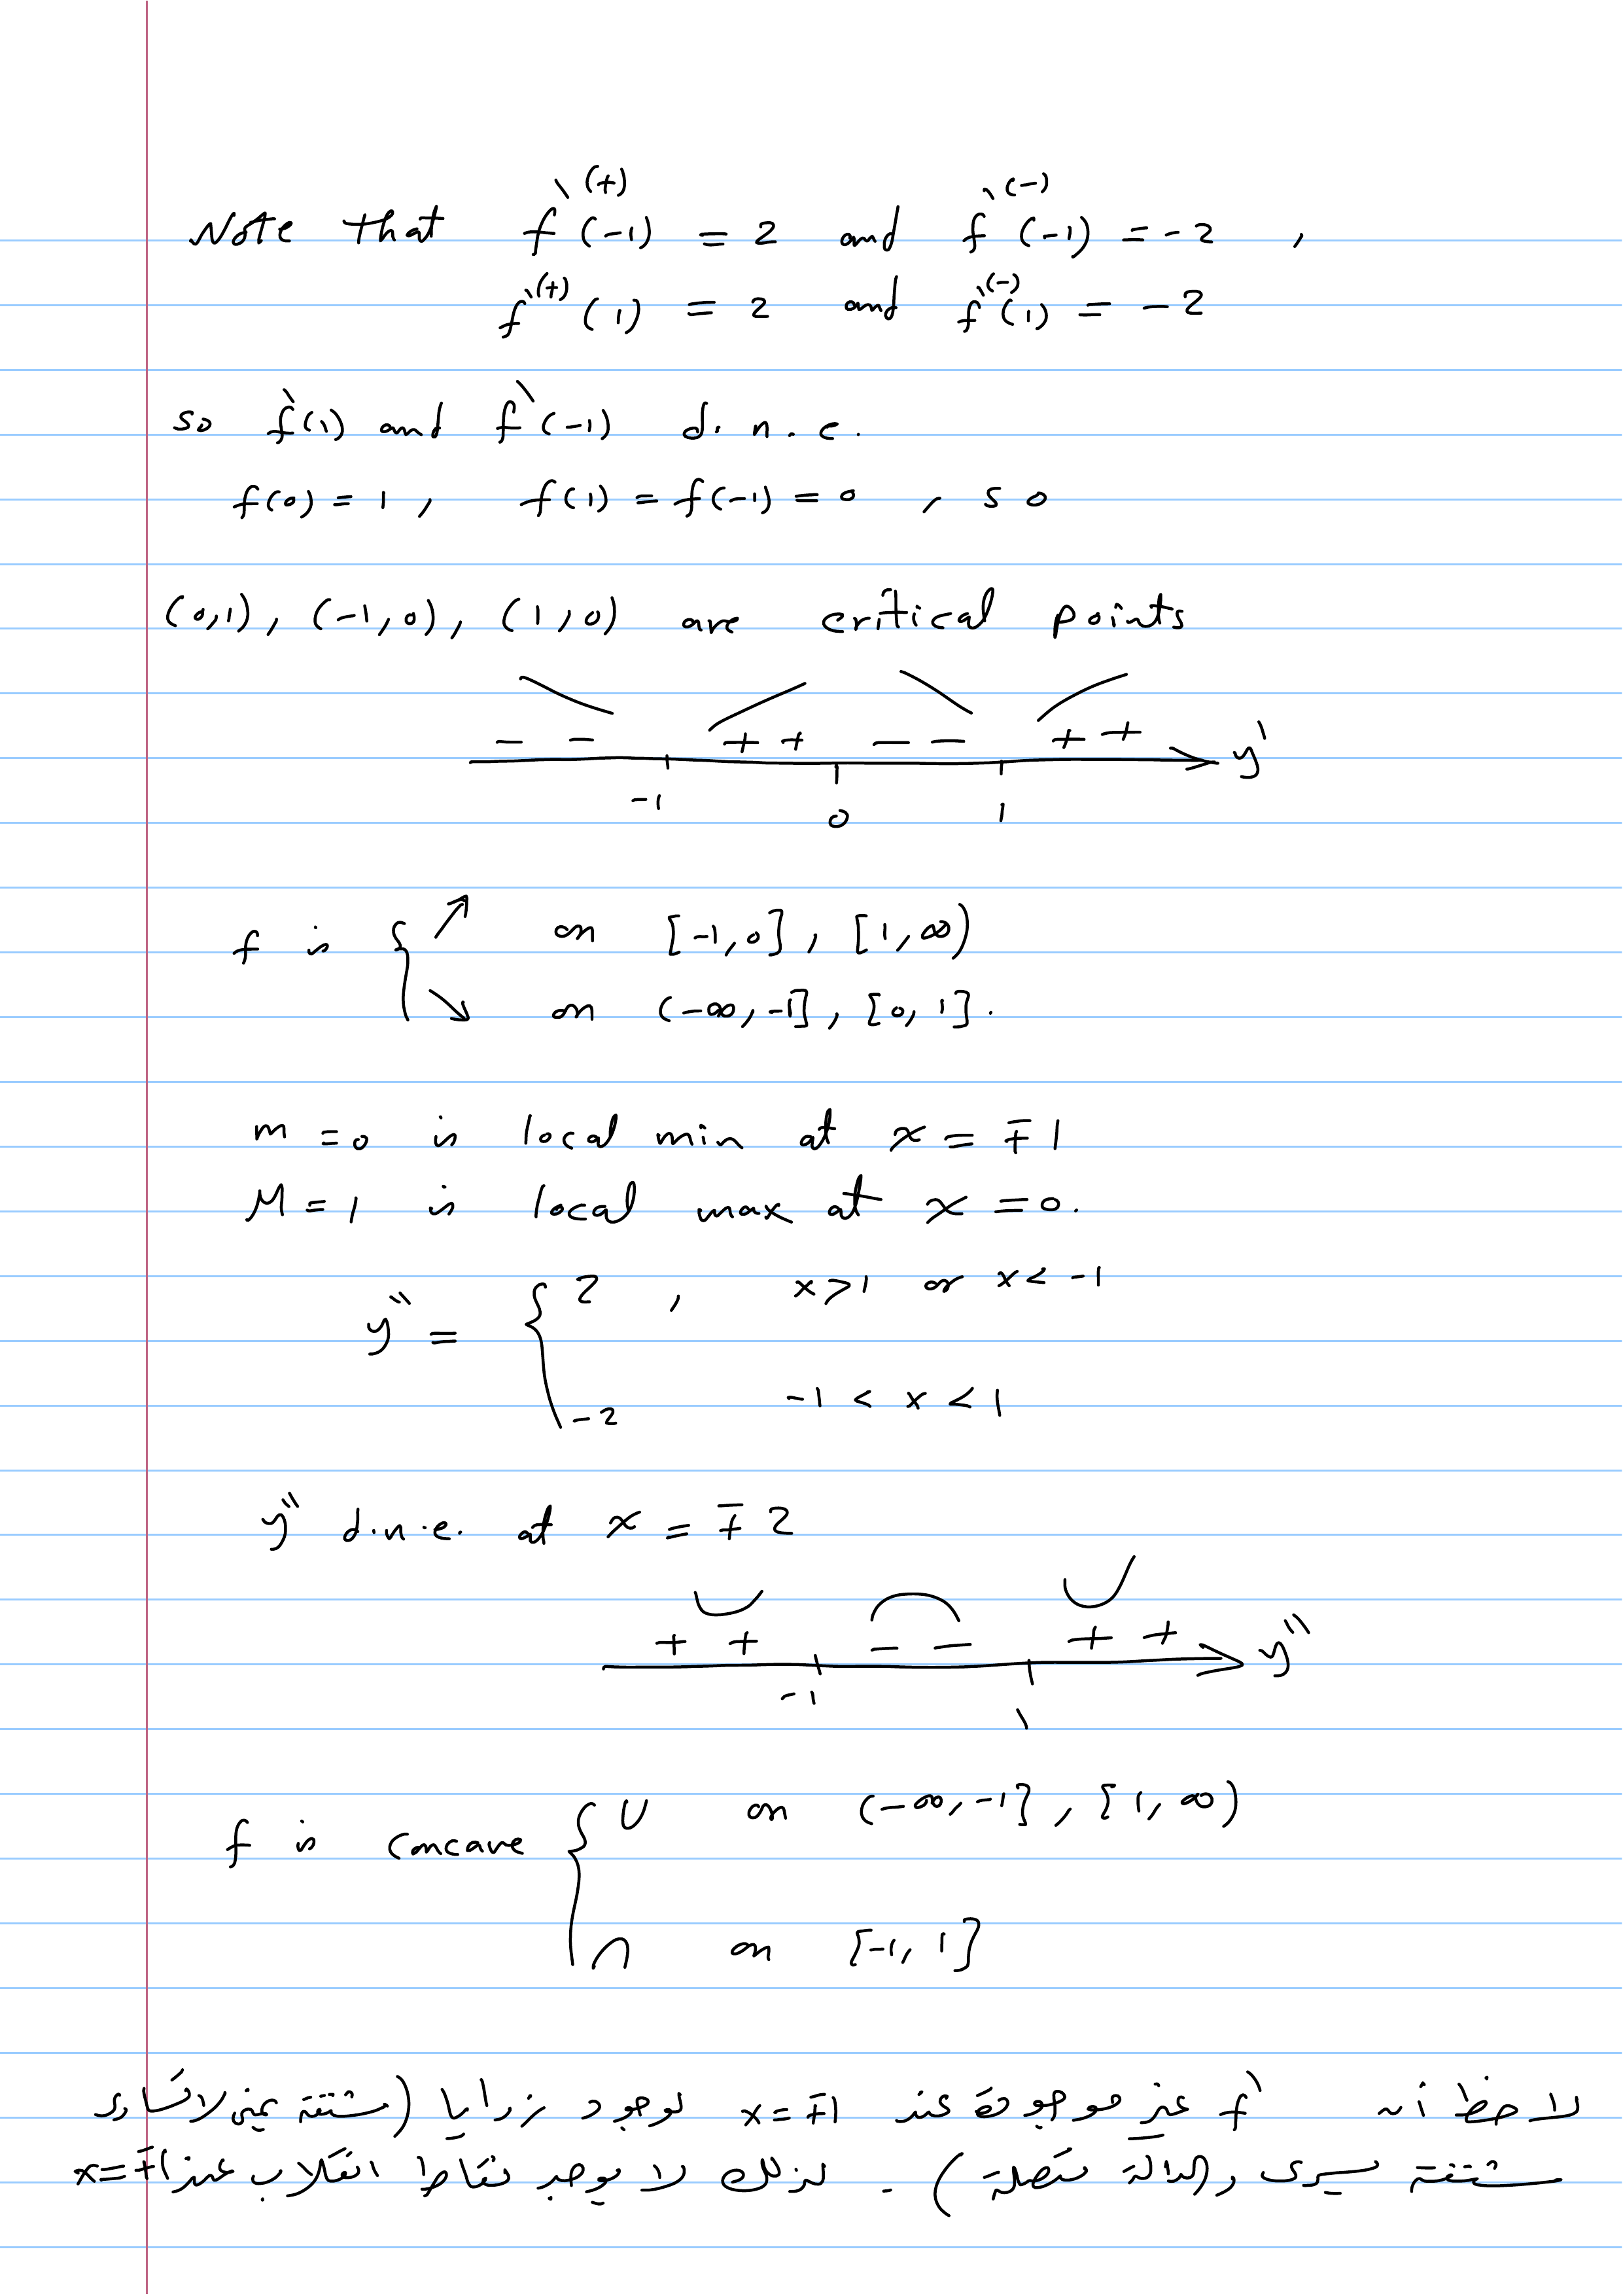 Note that f`⁽⁺⁾(-1) = 2 and f`⁽⁻⁾(-1) = -2 ,
f`⁽⁺⁾(1) = 2 and f`⁽⁻⁾(1) = -2
so f`(1) and f`(-1) d.n.e.
f(0) = 1 , f(1) = f(-1) = 0 , so
(0,1), (-1,0), (1,0) are critical points
- - + + - - + + y`
-1 0 1
f is { ↗ on [-1,0], [1,∞)
↘ on (-∞,-1], [0,1].
m = 0 is local min at x = ∓1
M = 1 is local max at x = 0.
y`` = { 2 , x>1 or x< -1
-2 -1 < x < 1
y`` d.n.e. at x = ∓2
+ + - - + + y``
-1 1
f is concave { ∪ on (-∞,-1], [1,∞)
∩ on [-1,1]
لاحظ أن f` غير موجودة عند x=∓1 لوجود زوايا (مشتقة يمنى لا تساوى
مشتقة يسرى والدالة متصلة). لذلك لا يوجد نقاط انقلاب عند x=∓1